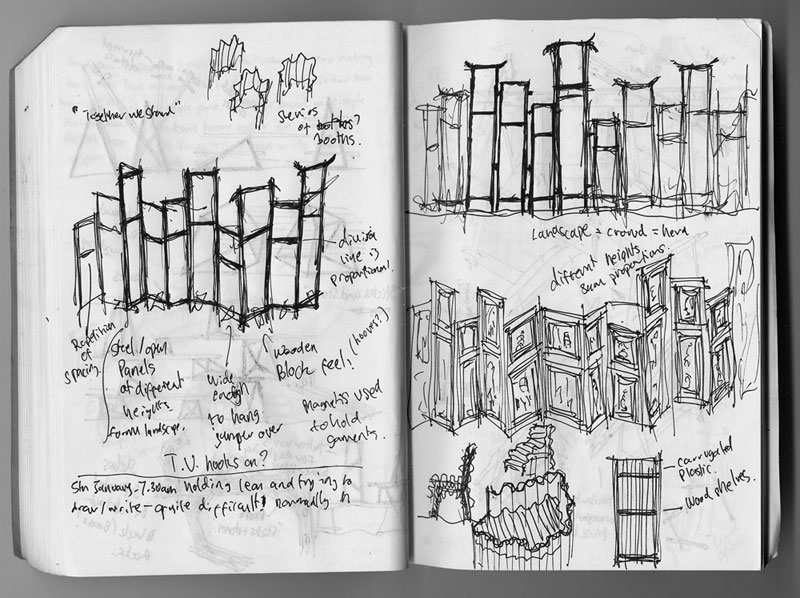 "Together we stand"
Series
of booths?
booths.
division
line is
proportional.
Repetition
of
spacing.
Steel/open
Panels
at different
heights?
form landscape.
wide
enough
to hang
jumper over
wooden
Block feel! (hooves?)
magnets used
to hold
garments.
T.V. hooks on?
5th January - 7.30am holding Leon and trying to
draw/write - quite difficult! normally in
Landscape = crowd = herd
different heights
same proportions.
corrugated
plastic.
wood shelves.